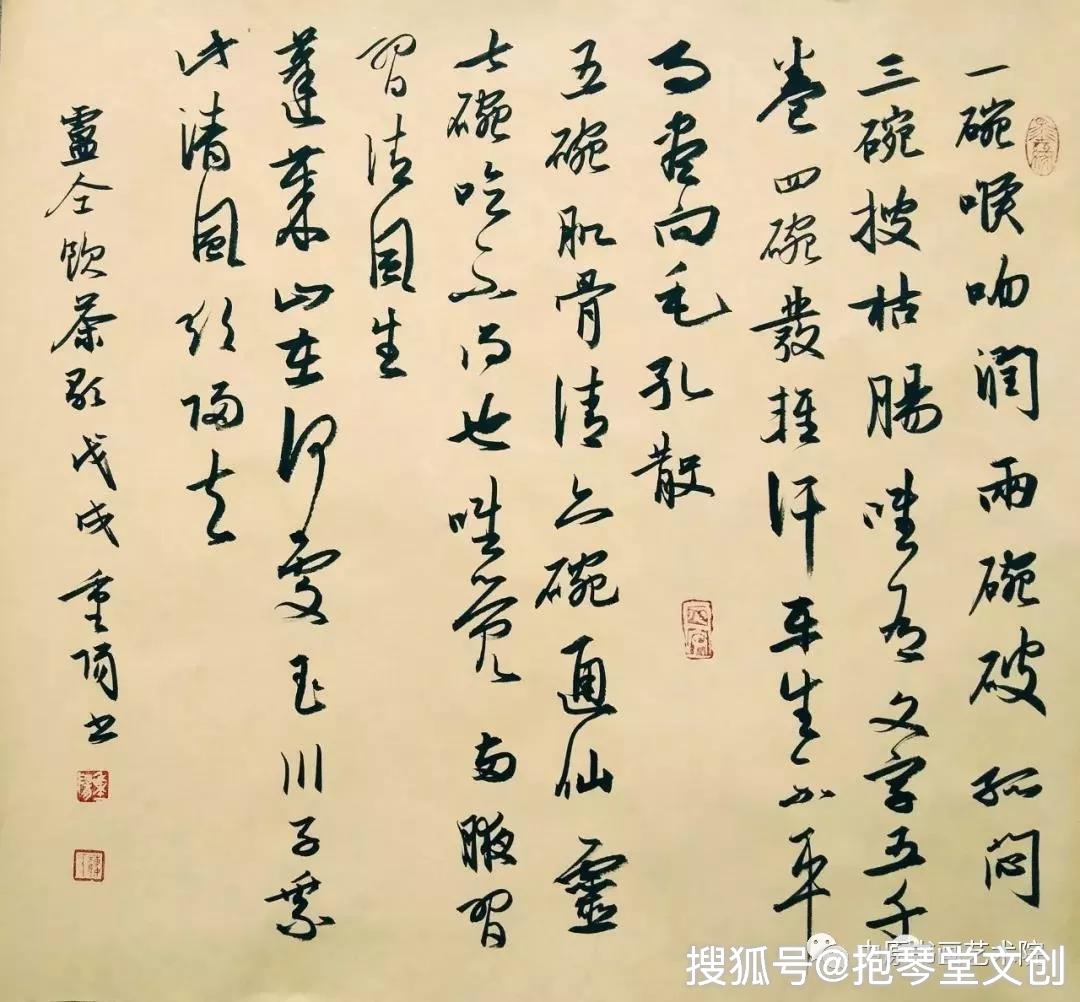 一碗喉吻潤兩碗破孤悶
三碗搜枯腸唯有文字五千
卷四碗發輕汗平生不平
事盡向毛孔散
五碗肌骨清六碗通仙靈
七碗吃不得也唯覺兩腋習
習清風生
蓬萊山在何處玉川子乘
此清風欲歸去
盧仝飲茶歌戊戌重陽書
书画艺术院
搜狐号@抱琴堂文创